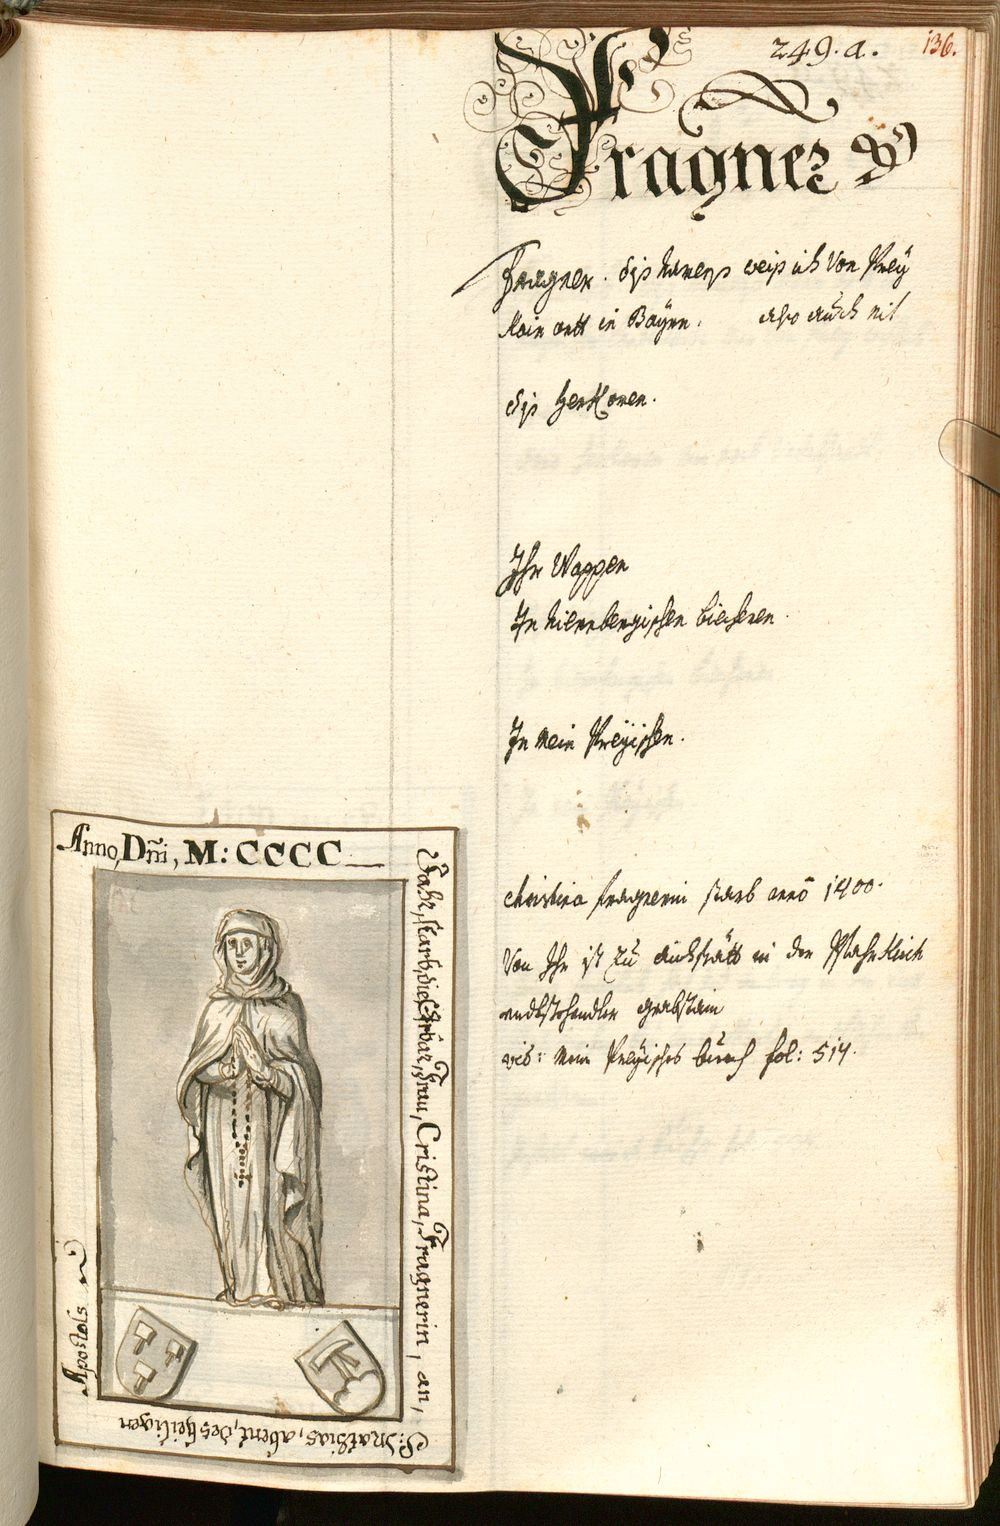 249. a.
136.
Fragner
Fragner. diss Namens weiss ich Von Prey
kain ortt in Bayrn. also auch nit
diss herkomen.
Ihr Wappen
In Nierrbergischen biecheren.
In mein Preyischen.
Christina fragnerin starb anno 1400.
Von Ihr ist zu aichstätt in der Pfahrkirch
grabstain
vid: mein Preyisches buech fol: 514.
Anno, Dñi, M: CCCC
Jahr, starb, die, Erbar, Frau, Cristina, Fragnerin, an,
S: Mathias, abent, des heiligen
Apostols